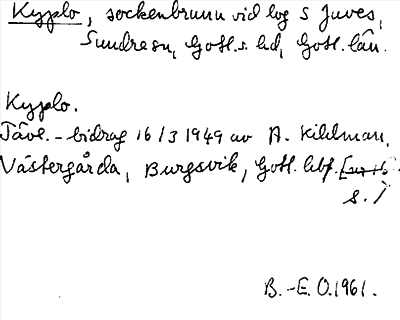 Kyplo, sockenbrunn vid log S Juves,
Sundre sn, Gotl. s. hd, Gotl. län.
Kyplo.
Tävl.-bidrag 16/3 1949 av A. Kihlman,
Västergårda, Burgsvik, Gotl.
s.)
B.-E. O. 1961.